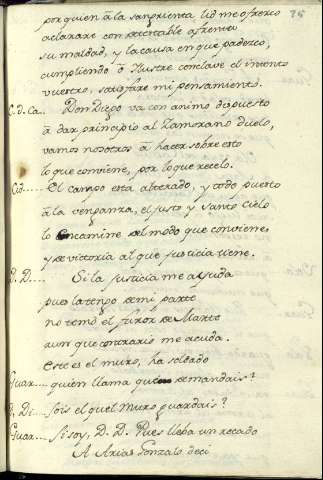 por quien â la sangrienta lid me ofrezco 75
aclararè con detestable afrenta
su maldad, y la causa en que padezco,
cumpliendo ô Ilustre conclave el intento
vuestro, satisfare mi pensamiento.
C. d. Ca... Don Diego va con animo dispuesto
â dar principio al Zamorano duelo,
vamos nosotros â hacer sobre esto
lo que conviene, por lo que recelo.
Cid..... El campo está alterado, y todo puesto
â la venganza, el justo y santo cielo
lo encamine del modo que conviene,
y dè victoria al que justicia tiene.
D. D..... Si la justicia me ayuda
pues la tengo de mi parte
no temo el furor de Marte
aun que contrario me acuda.
este es el muro, ha soldado
Guar.... quièn llama que demandais?
D. Di... Sois el que el Muro guardais?
Guar.... Si soy, D. D. Pues lleba un recado
A Arias Gonzalo deci